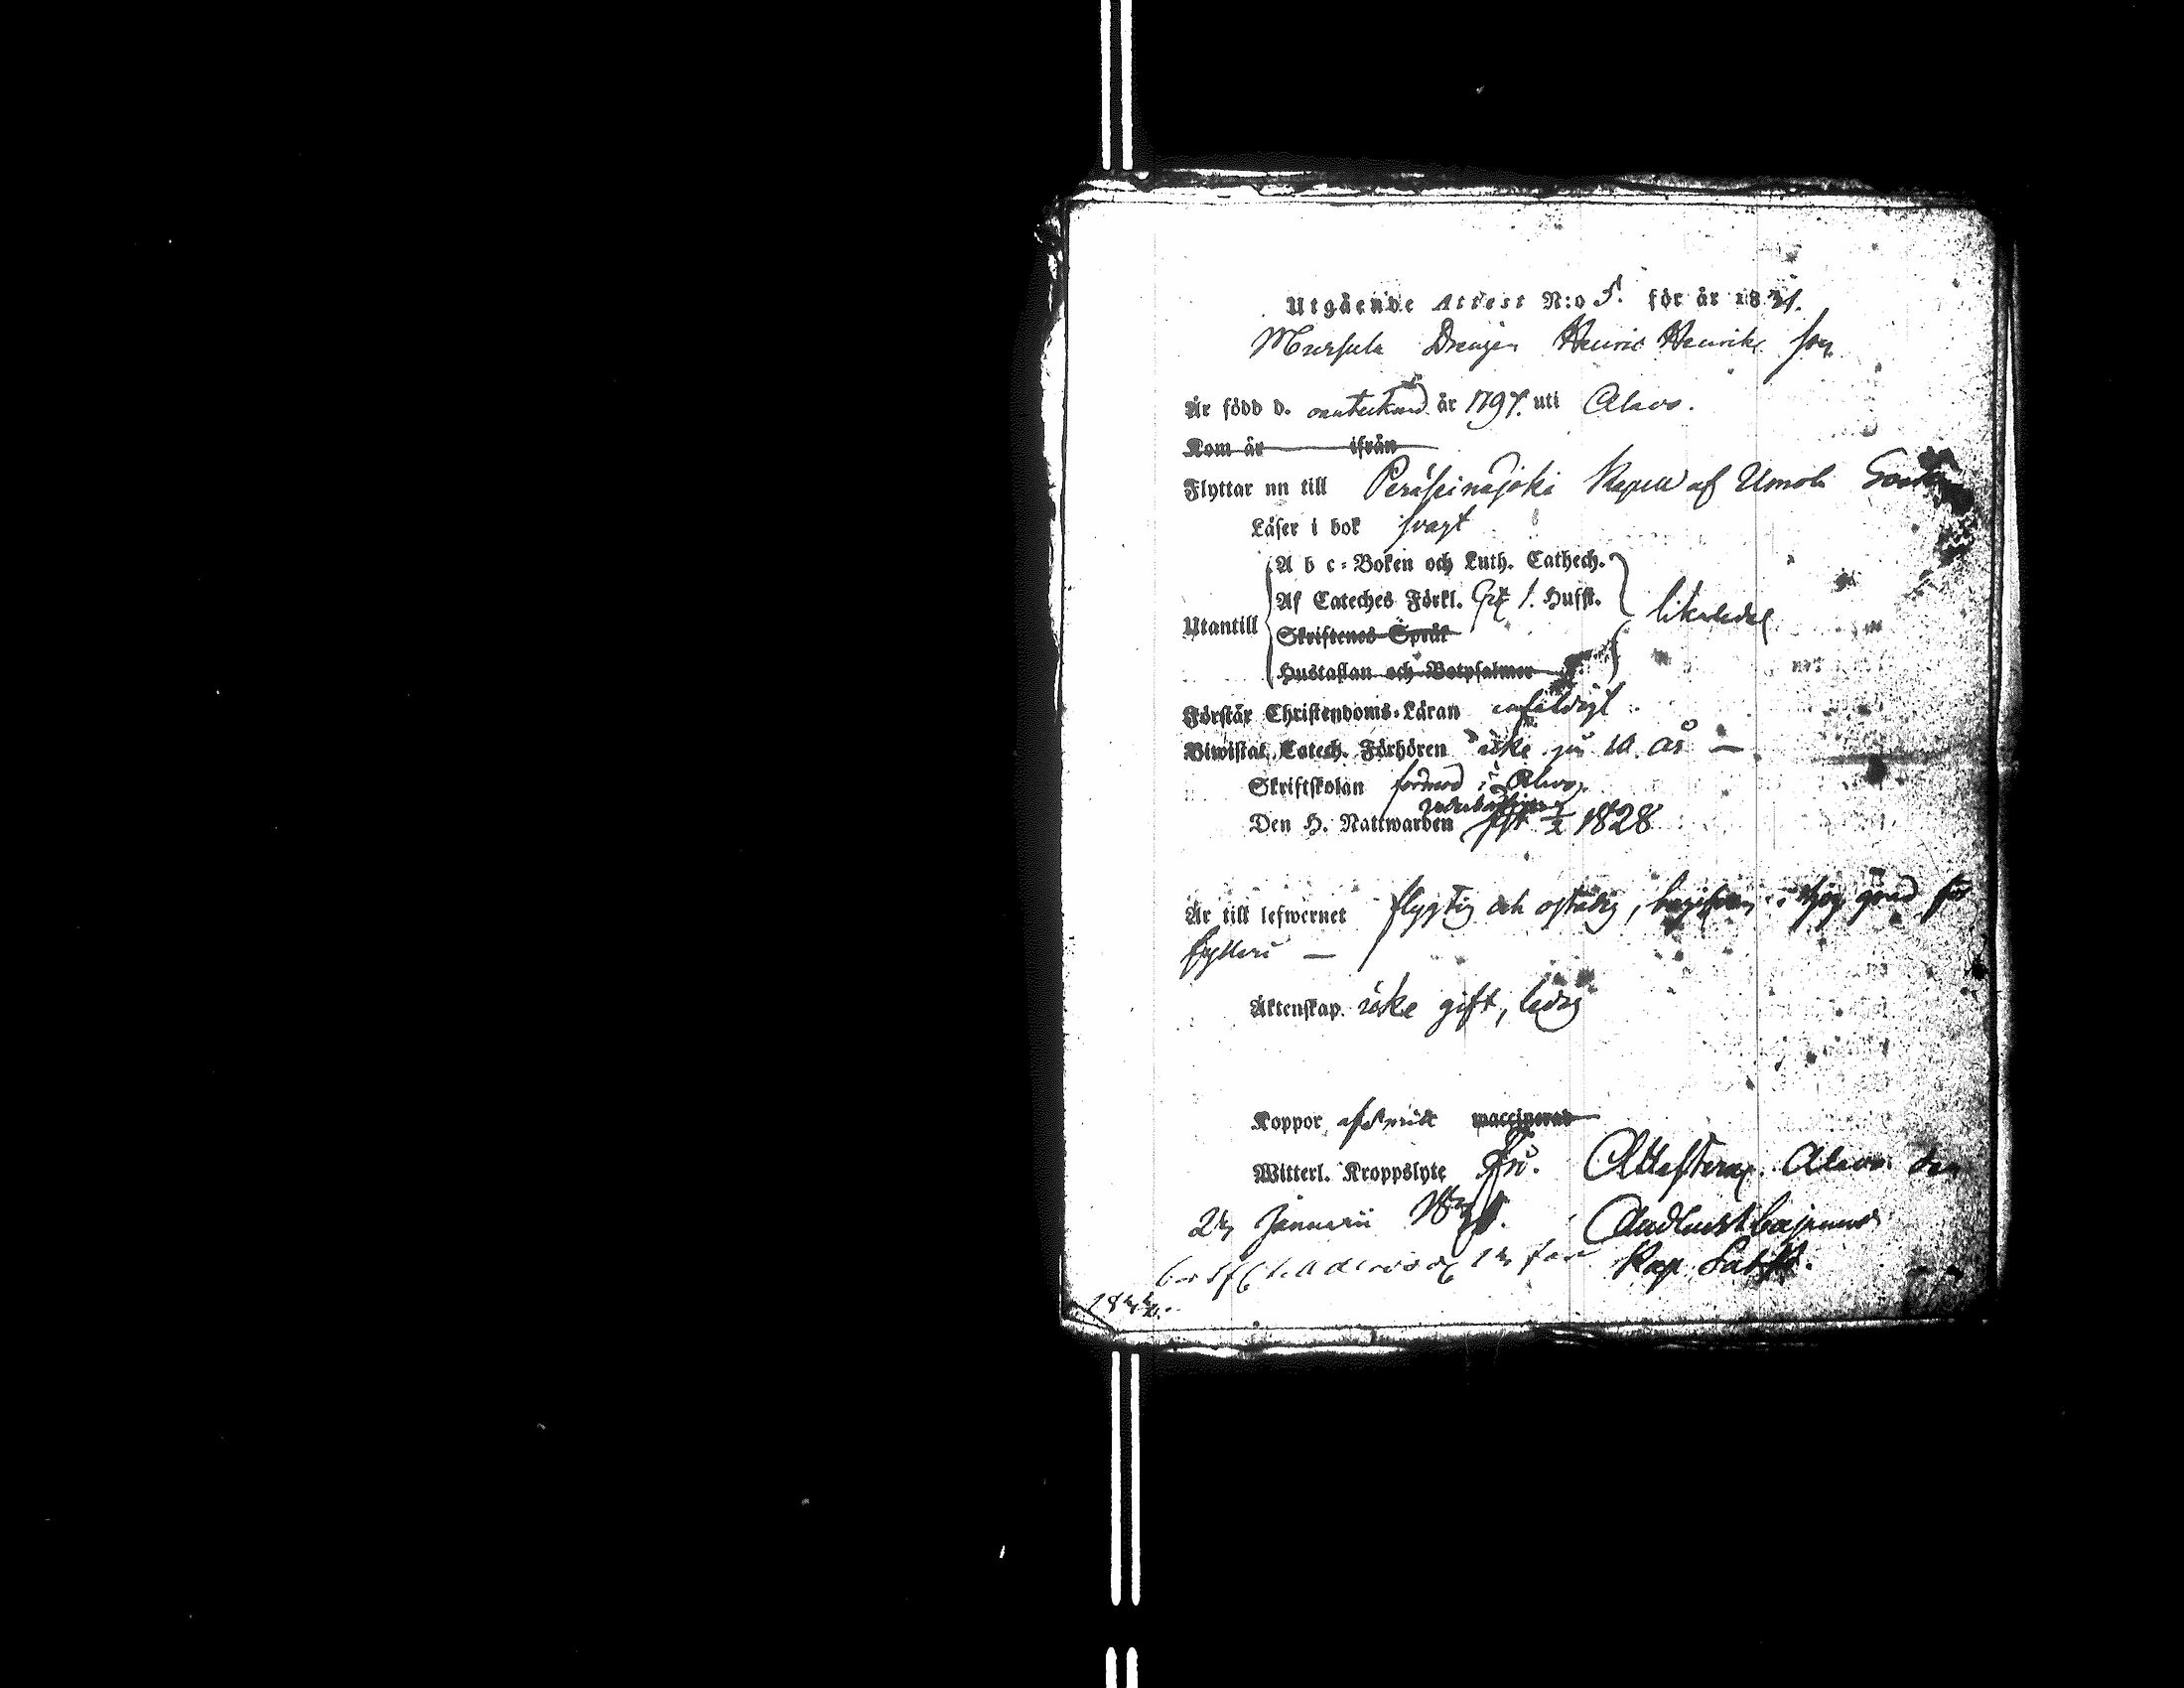 Utgående Attest N:o 5. för år 1831.
Mursula Drengen Henric Henriks son
Är född d. oantecknad år 1797. uti Alavo.
Kom år ifrån
Flyttar nu till Peräseinäjoki Kapell af Ilmola Sockn
Läser i bok svagt
A b c-Boken och Luth. Cathech.
Af Cateches Förkl. 1. Hufst.
Utantill likaledes
Skriftenes Språk
Hustaflan och Botpsalmer
Förstår Christendoms-Läran enfaldigt
Biwistat Catech. Förhören icke på 10 år —
Skriftskolan i Alavo
Den H. Nattwarden 1828
Är till lefwernet flygtig och ostadig, begifven i hög grad för
fylleri —
Äktenskap. icke gift, ledig
Koppor waccinerad
Witterl. Kroppslyte Fri. Attesterar Alavo den
Januarii And. Lust. Cajanus
Kap.